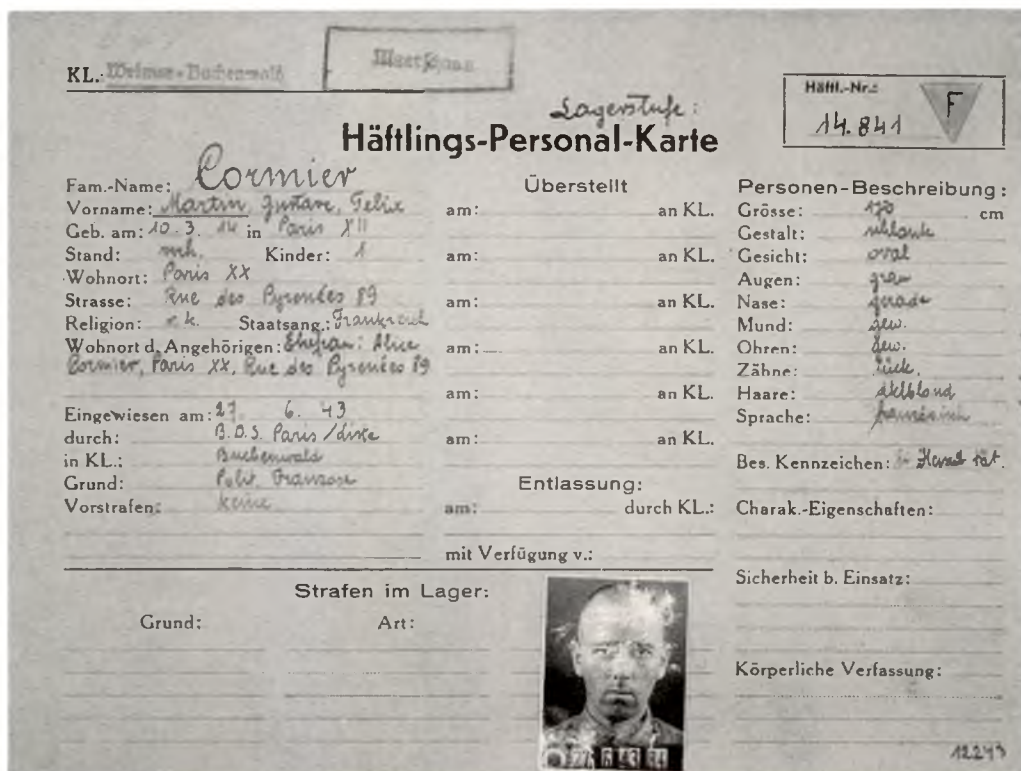 KL.: Weimar-Buchenwald
Häftl.-Nr.:
14.841
F
Lagerstufe:
Häftlings-Personal-Karte
Fam.-Name: Cormier
Vorname: Martin, Gustave, Felix
Geb. am: 10.3.14 in Paris XII
Stand: verh. Kinder: 1
Wohnort: Paris XX
Strasse: Rue des Pyrenées 89
Religion: r.k. Staatsang.: Frankreich
Wohnort d. Angehörigen: Ehefrau: Alice
Cormier, Paris XX, Rue des Pyrenées 89
Eingewiesen am: 27. 6. 43
durch: B.D.S. Paris/
in KL.: Buchenwald
Grund: Polit. Franzose
Vorstrafen: keine
Überstellt
am: an KL.
am: an KL.
am: an KL.
am: an KL.
am: an KL.
am: an KL.
Entlassung:
am: durch KL.:
mit Verfügung v.:
Personen-Beschreibung:
Grösse: 170 cm
Gestalt: schlank
Gesicht: oval
Augen: grau
Nase: gerade
Mund: gew.
Ohren: gew.
Zähne: lück.
Haare: dklblond
Sprache: französisch
Bes. Kennzeichen: tät.
Charak.-Eigenschaften:
Sicherheit b. Einsatz:
Körperliche Verfassung:
Strafen im Lager:
Grund: Art:
12243